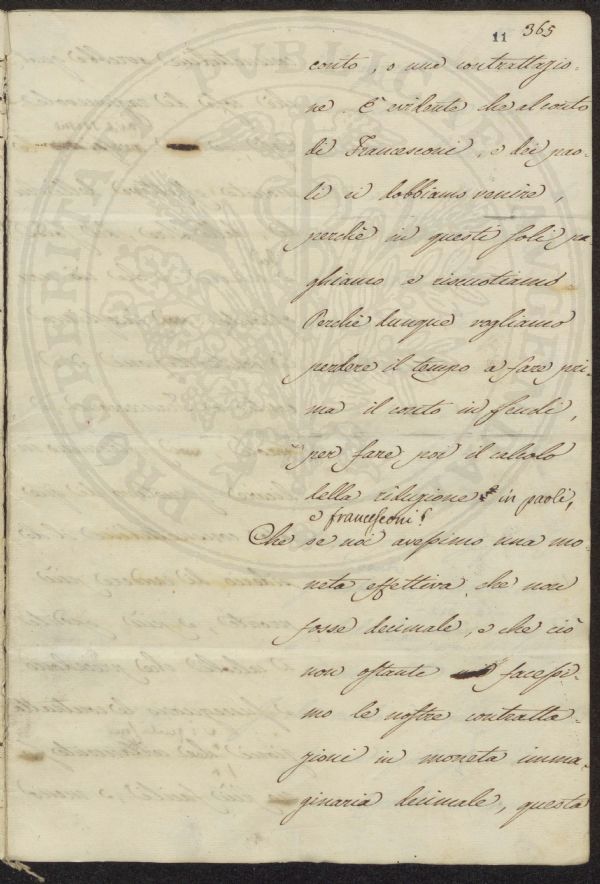 11 365
conto, o una contrattazio-
ne. È evidente che al conto
di Francesconi, e dei pao-
li ci dobbiamo venire,
perchè in questi soli pa-
ghiamo e riscuotiamo
Perchè dunque vogliamo
perdere il tempo a fare pri-
ma il conto in scudi,
per fare poi il calcolo
della riduzione in paoli,
e francesconi?
Che se noi avessimo una mo-
neta effettiva che non
fosse decimale, e che ciò
non ostante facessi-
mo le nostre contratta-
zioni in moneta imma-
ginaria decimale, questa